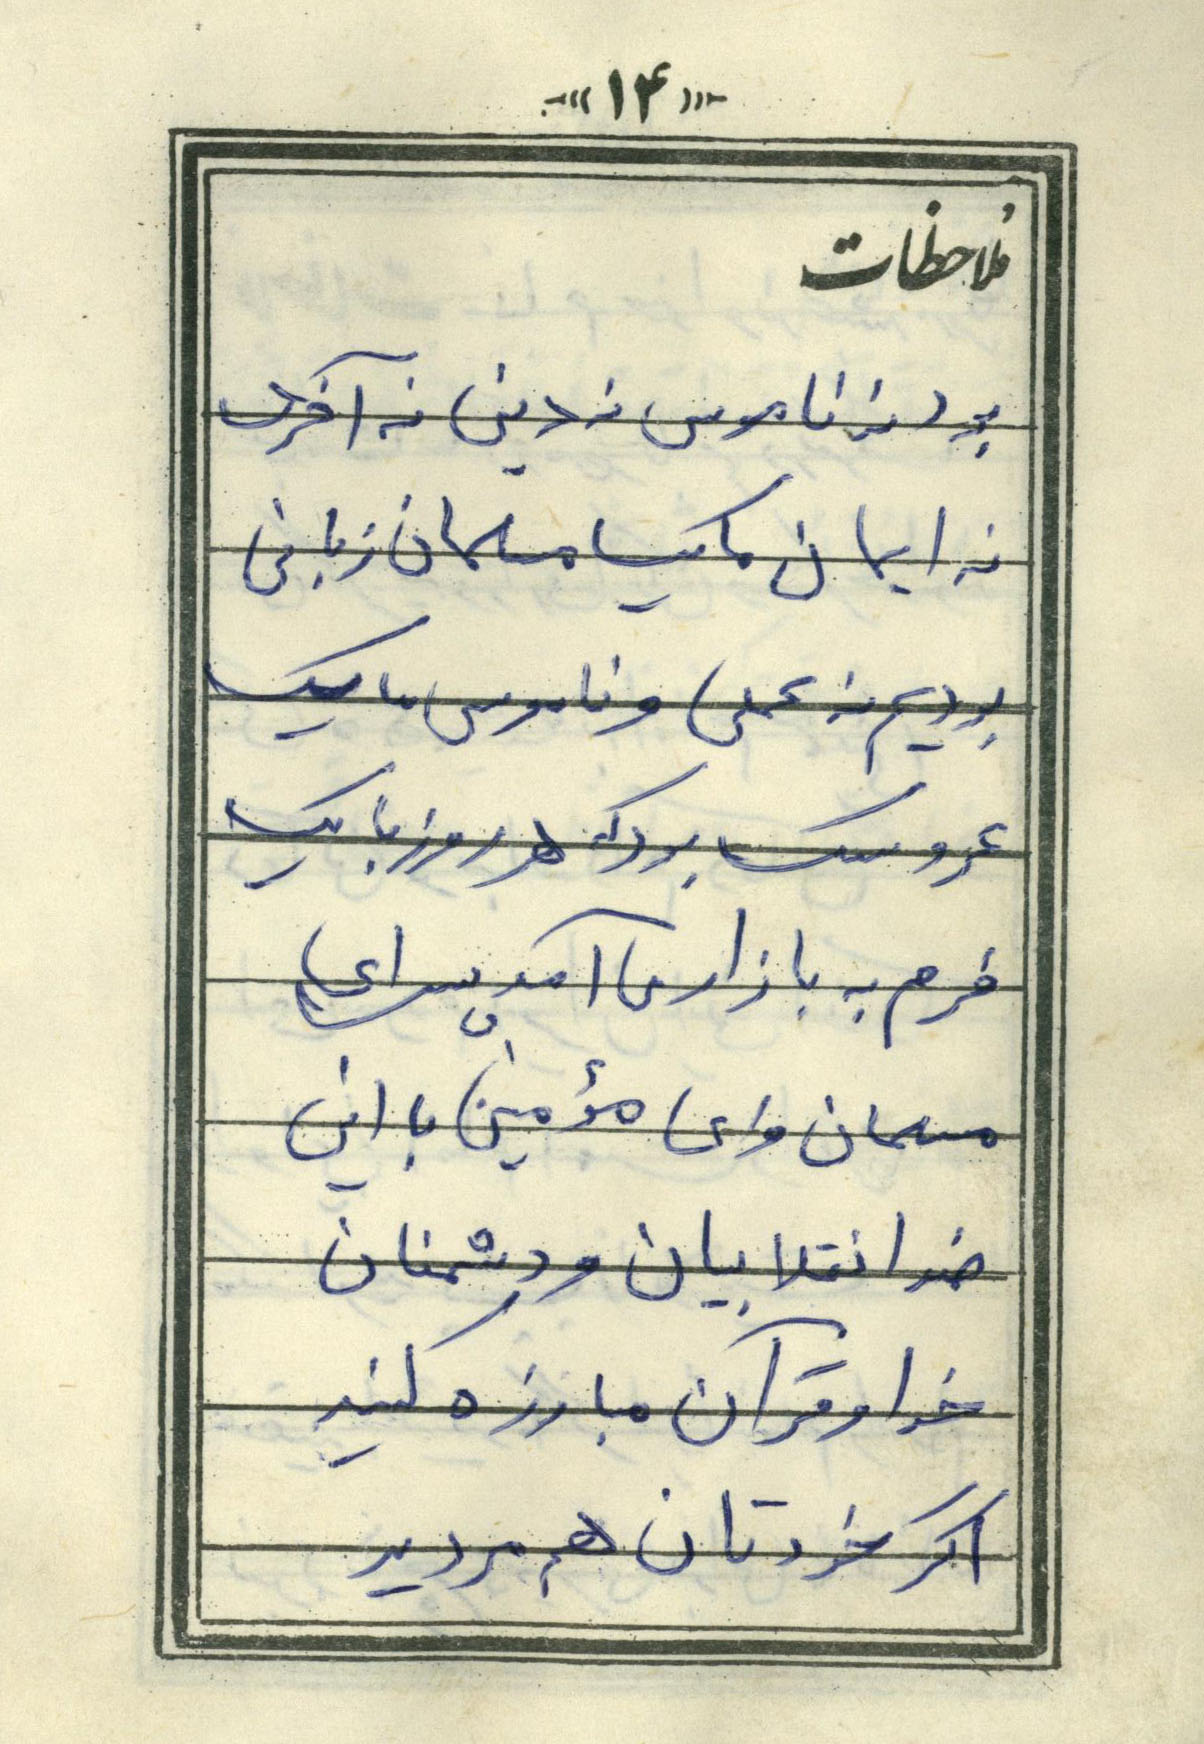 «۱۴»
ملاحظات
بود نه ناموس نه دینی نه آخرت
نه ایمان ما یک مسلمان زبانی
بودیم نه عملی و ناموس ما یک
عروسک بود که هر روز با یک
فرم به بازار می آمد پس ای
مسلمان وای مؤمین با این
ضد انقلابیان و دشمنان
خدا و قرآن مبارزه کنید
اگر خودتان هم مردید